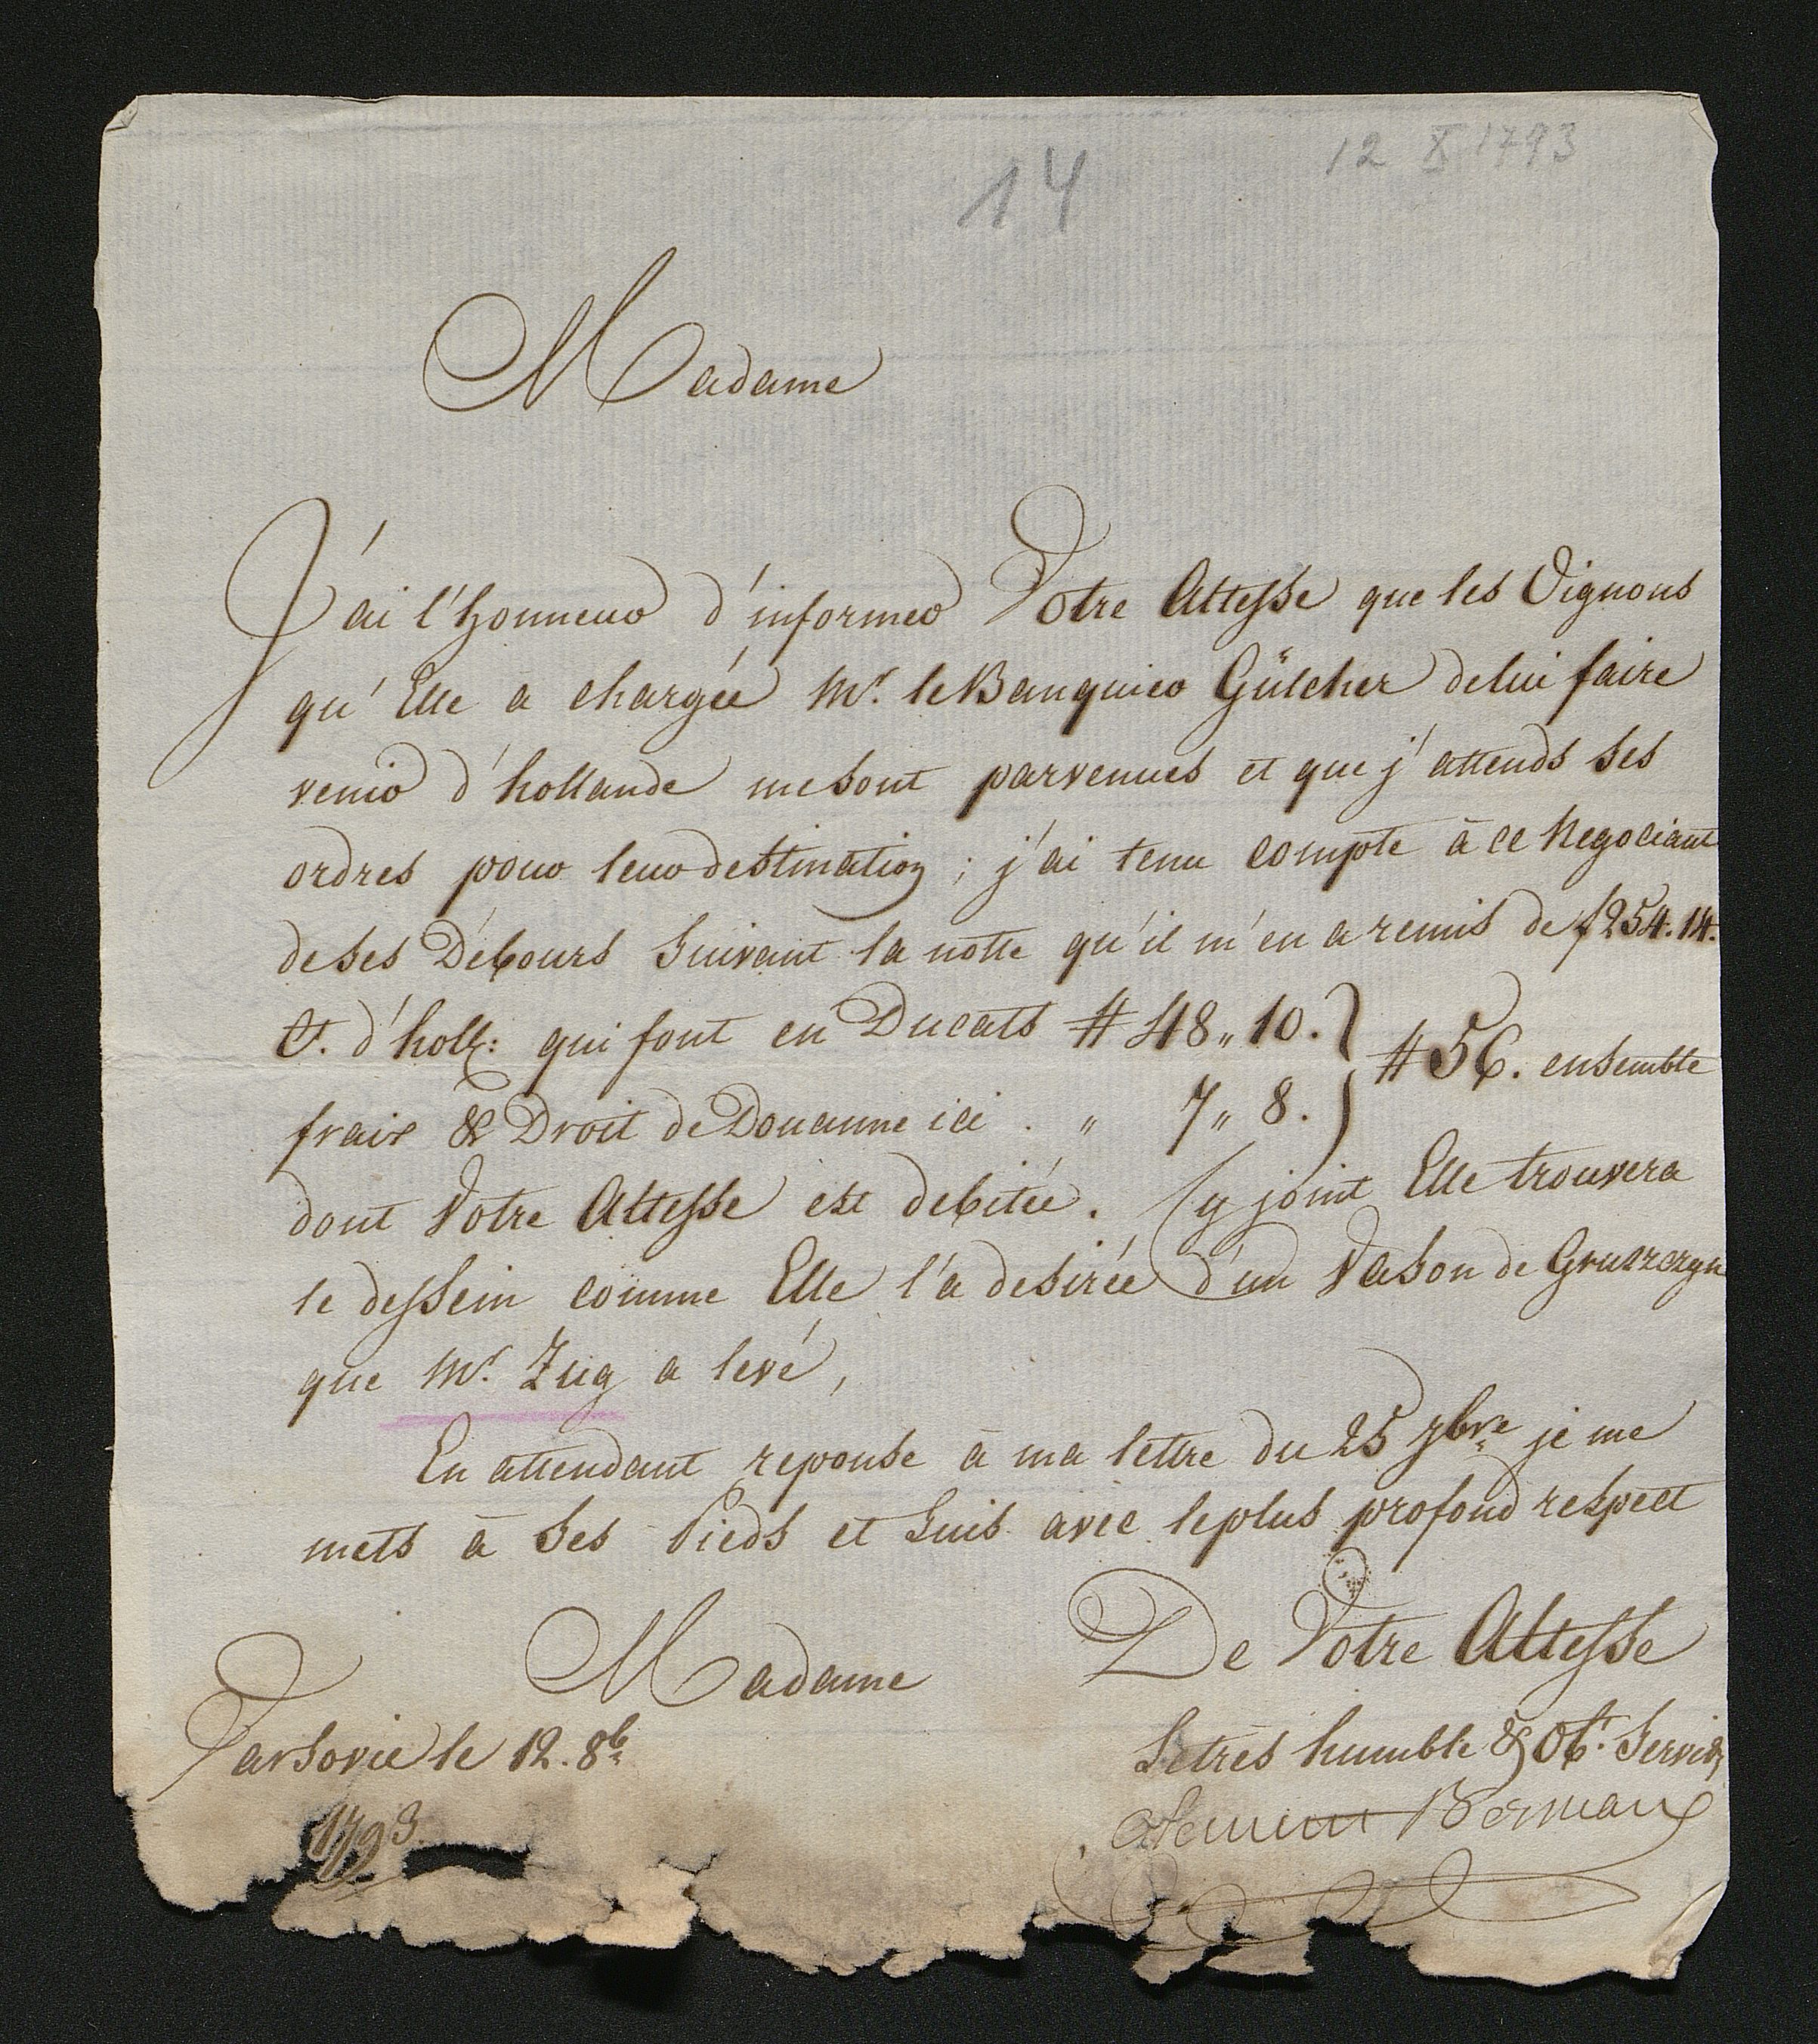 12 X 1793
14
Madame
J'ai l'honneur d'informer Votre Altesse que les Oignons
qu'Elle a chargée Mr. le Banquier Gülcher de lui faire
venir d'hollande me sont parvenues et que j'attends ses
ordres pour leur destination; j'ai tenu compte à ce Negociant
de ses Débours Suivant la notte qu'il m'en a remis de f 254.14.
Ct. d'holl: qui font en Ducats # 48„10. } # 56. ensemble
frais & Droit de Douanne ici . „ 7„ 8. }
dont Votre Altesse est debitée. Cy joint Elle trouvera
le dessein comme Elle l'a desirée d'un Vason de Gruszczyn
que Mr. Zug a levé,
En attendant reponse à ma lettre du 25 7bre je me
mets à Ses Pieds et Suis avec le plus profond respect
Madame
De Votre Altesse
Varsovie le 12. 8b
Le très humble & Ob. Servit
1793.
Bernaux